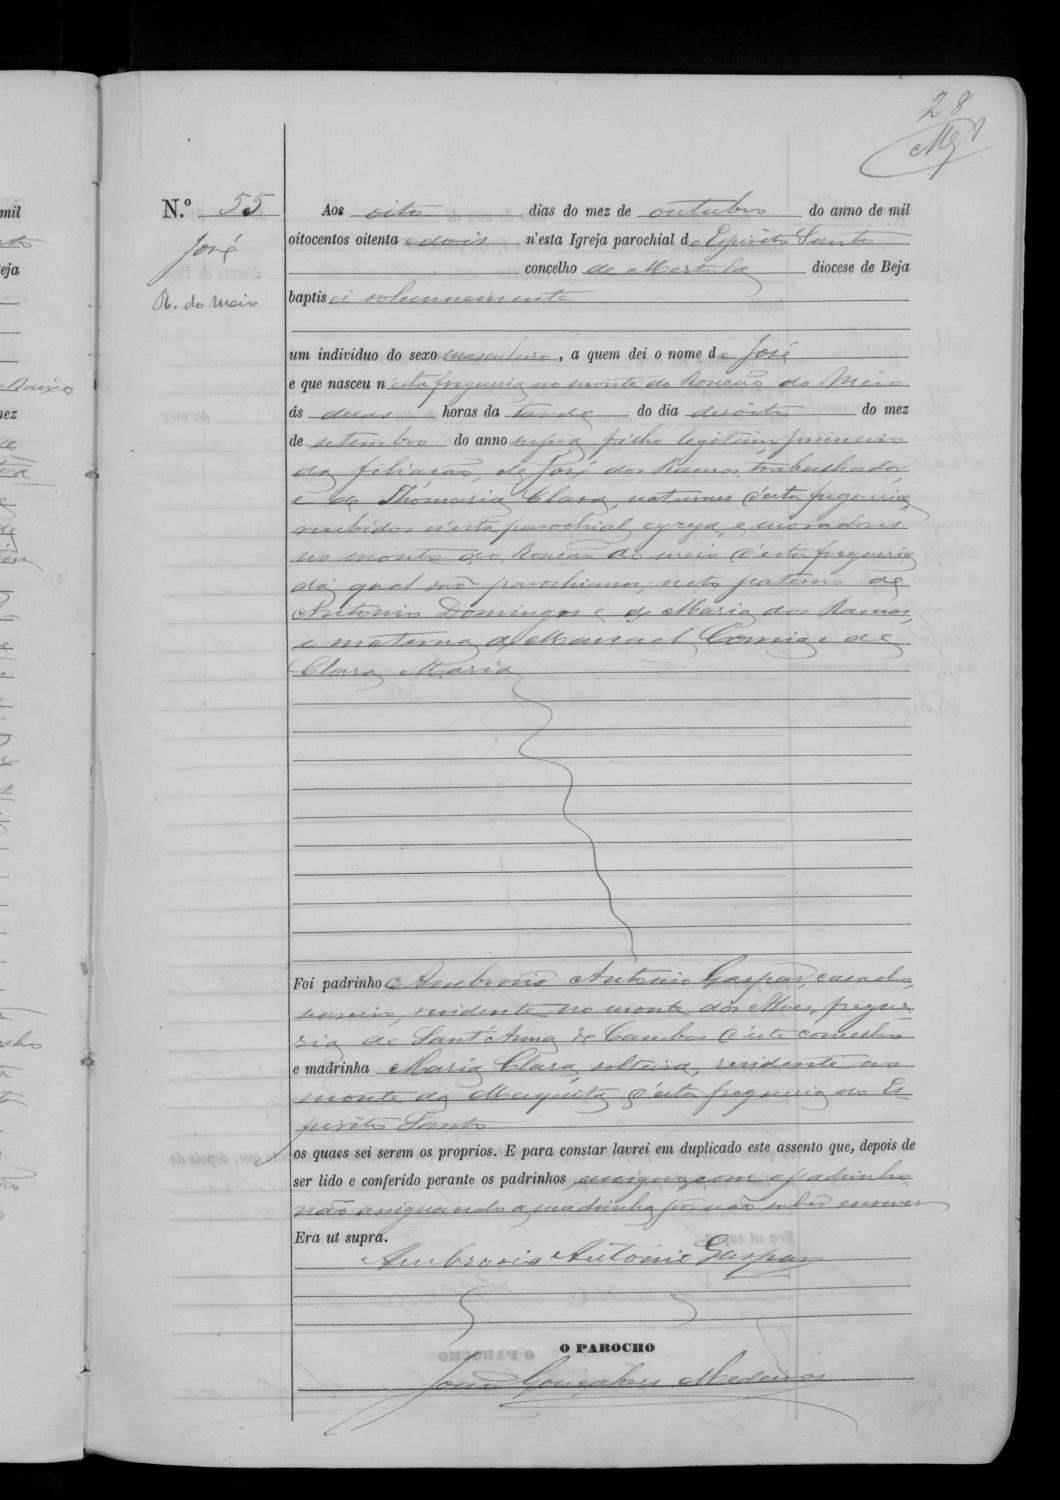 28
N.º 55
José
R. do Meio
Aos oito dias do mez de outubro do anno de mil
oitocentos oitenta e dois n'esta Igreja parochial do Espirito Santo
concelho de Mertola diocese de Beja
baptisei solemnemente
um individuo do sexo masculino, a quem dei o nome de José
e que nasceu n'esta freguezia no monte do Roncão do Meio
ás duas horas da tarde do dia desoito do mez
de setembro do anno supra filho legitimo primeiro
da filiação, de José dos Ramos, trabalhador,
e de Thomasia Clara, naturaes d'esta freguezia,
recebidos n'esta parochial egreja, e moradores
no monte do Roncão do meio d'esta freguezia
da qual são parochianos; neto paterno de
Antonio Domingos e de Maria dos Ramos,
e materno de Manuel Correia e de
Clara Maria
Foi padrinho Ambrosio Antonio Gaspar, casado,
residente no monte dos Alves, fregue
zia de Sant'Anna de Cambas d'este concelho
e madrinha Maria Clara, solteira, residente no
monte da Mesquita d'esta freguezia do Es
pirito Santo
os quaes sei serem os proprios. E para constar lavrei em duplicado este assento que, depois de
ser lido e conferido perante os padrinhos, assigno com o padrinho
não assignando a madrinha por não saber escrever
Era ut supra.
Ambrosio Antonio Gaspar
O PAROCHO
João Gonçalves Medeiros